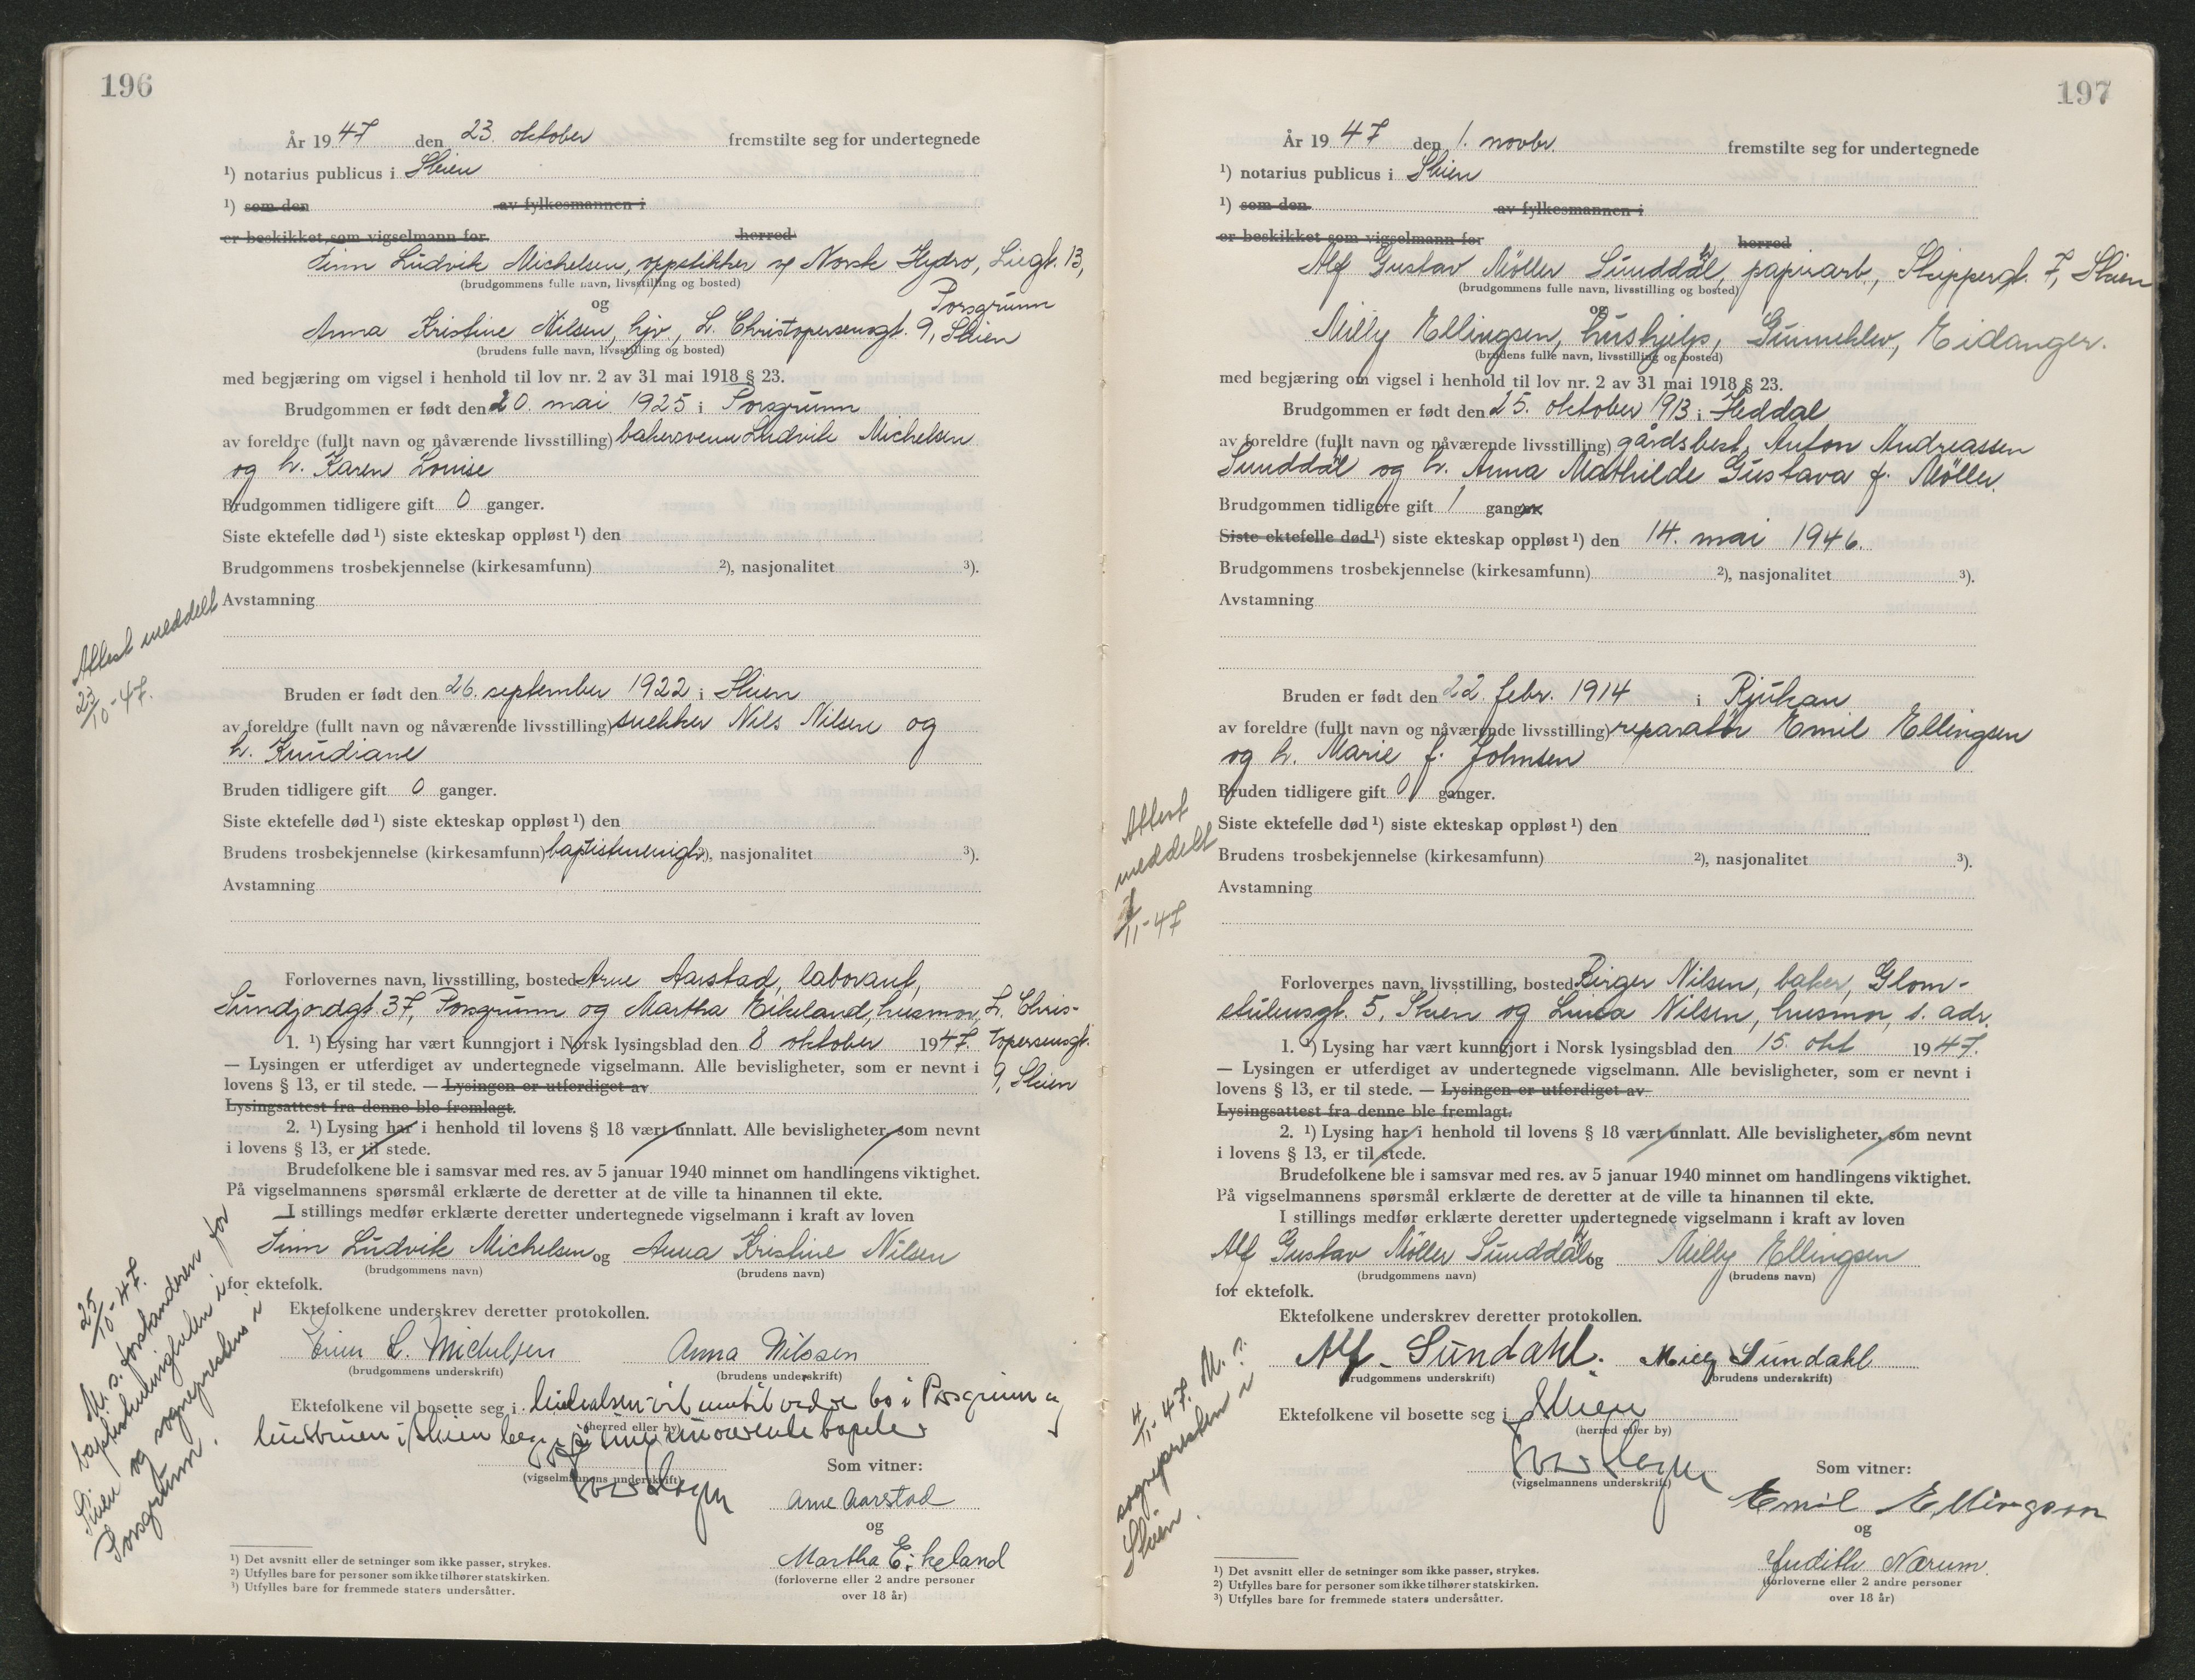 196
År 1947 den 23. oktober fremstilte seg for undertegnede
¹) notarius publicus i Skien
¹) som den av fylkesmannen i
er beskikket som vigselmann for herred
Finn Ludvik Michelsen, oppstikker v/ Norsk Hydro, Liegt. 13,
(brudgommens fulle navn, livsstilling og bosted)
Porsgrunn
og
Anna Kristine Nilsen, hjv., L. Christopersensgt. 9, Skien
(brudens fulle navn, livsstilling og bosted)
med begjæring om vigsel i henhold til lov nr. 2 av 31 mai 1918 § 23.
Brudgommen er født den 20. mai 1925 i Porsgrunn
av foreldre (fullt navn og nåværende livsstilling) bakersvenn Ludvik Michelsen
og h. Karen Louise
Brudgommen tidligere gift 0 ganger.
Siste ektefelle død ¹) siste ekteskap oppløst ¹) den
Brudgommens trosbekjennelse (kirkesamfunn) ²), nasjonalitet ³).
Avstamning
Attest meddelt
23/10-47.
Bruden er født den 26. september 1922 i Skien
av foreldre (fullt navn og nåværende livsstilling) snekker Nils Nilsen og
h. Knudiane
Bruden tidligere gift 0 ganger.
Siste ektefelle død ¹) siste ekteskap oppløst ¹) den
Brudens trosbekjennelse (kirkesamfunn) baptistmenigh. ²), nasjonalitet ³).
Avstamning
Forlovernes navn, livsstilling, bosted Arne Aarstad, laborant,
Sundjordgt. 37, Porsgrunn og Martha Eikeland, husmor, L. Chris-
topersensgt.
9, Skien
1. ¹) Lysing har vært kunngjort i Norsk lysingsblad den 8 oktober 1947.
— Lysingen er utferdiget av undertegnede vigselmann. Alle bevisligheter, som er nevnt i
lovens § 13, er til stede. — Lysingen er utferdiget av
Lysingsattest fra denne ble fremlagt.
2. ¹) Lysing har i henhold til lovens § 18 vært unnlatt. Alle bevisligheter, som nevnt
i lovens § 13, er til stede.
Brudefolkene ble i samsvar med res. av 5 januar 1940 minnet om handlingens viktighet.
På vigselmannens spørsmål erklærte de deretter at de ville ta hinannen til ekte.
I stillings medfør erklærte deretter undertegnede vigselmann i kraft av loven
Finn Ludvik Michelsen og Anna Kristine Nilsen
(brudgommens navn) (brudens navn)
for ektefolk.
Ektefolkene underskrev deretter protokollen.
Finn L. Michelsen Anna Nilssen
(brudgommens underskrift) (brudens underskrift)
Ektefolkene vil bosette seg i Michelsen vil inntil videre bo i Porsgrunn og
hustruen i Skien begge i sine nuværende bopeler
(herred eller by)
(vigselmannens underskrift)
Som vitner:
Arne Aarstad
og
Martha Eikeland
(forloverne eller 2 andre personer
over 18 år)
25/10-47.
M. s. forstanderen for
baptistmenigheten i
Skien og sogneprestens i
Porsgrunn.
¹) Det avsnitt eller de setninger som ikke passer, strykes.
²) Utfylles bare for personer som ikke tilhører statskirken.
³) Utfylles bare for fremmede staters undersåtter.
197
År 1947 den 1. novbr. fremstilte seg for undertegnede
¹) notarius publicus i Skien
¹) som den av fylkesmannen i
er beskikket som vigselmann for herred
Alf Gustav Møller Sunddal, papirarb., Skippergt. 7, Skien
(brudgommens fulle navn, livsstilling og bosted)
og
Milly Ellingsen, hushjelp, Gunneklev, Eidanger.
(brudens fulle navn, livsstilling og bosted)
med begjæring om vigsel i henhold til lov nr. 2 av 31 mai 1918 § 23.
Brudgommen er født den 25. oktober 1913 i Heddal
av foreldre (fullt navn og nåværende livsstilling) gårdsbest. Anton Andreassen
Sunddal og h. Anna Mathilde Gustava f. Møller.
Brudgommen tidligere gift 1 ganger
Siste ektefelle død ¹) siste ekteskap oppløst ¹) den 14. mai 1946.
Brudgommens trosbekjennelse (kirkesamfunn) ²), nasjonalitet ³).
Avstamning
Bruden er født den 22. febr. 1914 i Rjukan
av foreldre (fullt navn og nåværende livsstilling) reparatør Emil Ellingsen
og h. Marie f. Johnsen
Bruden tidligere gift 0 ganger.
Siste ektefelle død ¹) siste ekteskap oppløst ¹) den
Brudens trosbekjennelse (kirkesamfunn) ²), nasjonalitet ³).
Avstamning
Attest
meddelt
/11-47
Forlovernes navn, livsstilling, bosted Birger Nilsen, baker, Glom-
stulensgt. 5, Skien og Linea Nilsen, husmor, s. adr.
1. ¹) Lysing har vært kunngjort i Norsk lysingsblad den 15. okt 1947.
— Lysingen er utferdiget av undertegnede vigselmann. Alle bevisligheter, som er nevnt i
lovens § 13, er til stede. — Lysingen er utferdiget av
Lysingsattest fra denne ble fremlagt.
2. ¹) Lysing har i henhold til lovens § 18 vært unnlatt. Alle bevisligheter, som nevnt
i lovens § 13, er til stede.
Brudefolkene ble i samsvar med res. av 5 januar 1940 minnet om handlingens viktighet.
På vigselmannens spørsmål erklærte de deretter at de ville ta hinannen til ekte.
I stillings medfør erklærte deretter undertegnede vigselmann i kraft av loven
Alf Gustav Møller Sunddal og Milly Ellingsen
(brudgommens navn) (brudens navn)
for ektefolk.
Ektefolkene underskrev deretter protokollen.
Alf Sundahl. Milly Sundahl
(brudgommens underskrift) (brudens underskrift)
Ektefolkene vil bosette seg i Skien
(herred eller by)
(vigselmannens underskrift)
Som vitner:
Emil Ellingsen
og
Judith Nærum.
(forloverne eller 2 andre personer
over 18 år)
4/11-47. M. s.
sognepresten i
Skien.
¹) Det avsnitt eller de setninger som ikke passer, strykes.
²) Utfylles bare for personer som ikke tilhører statskirken.
³) Utfylles bare for fremmede staters undersåtter.